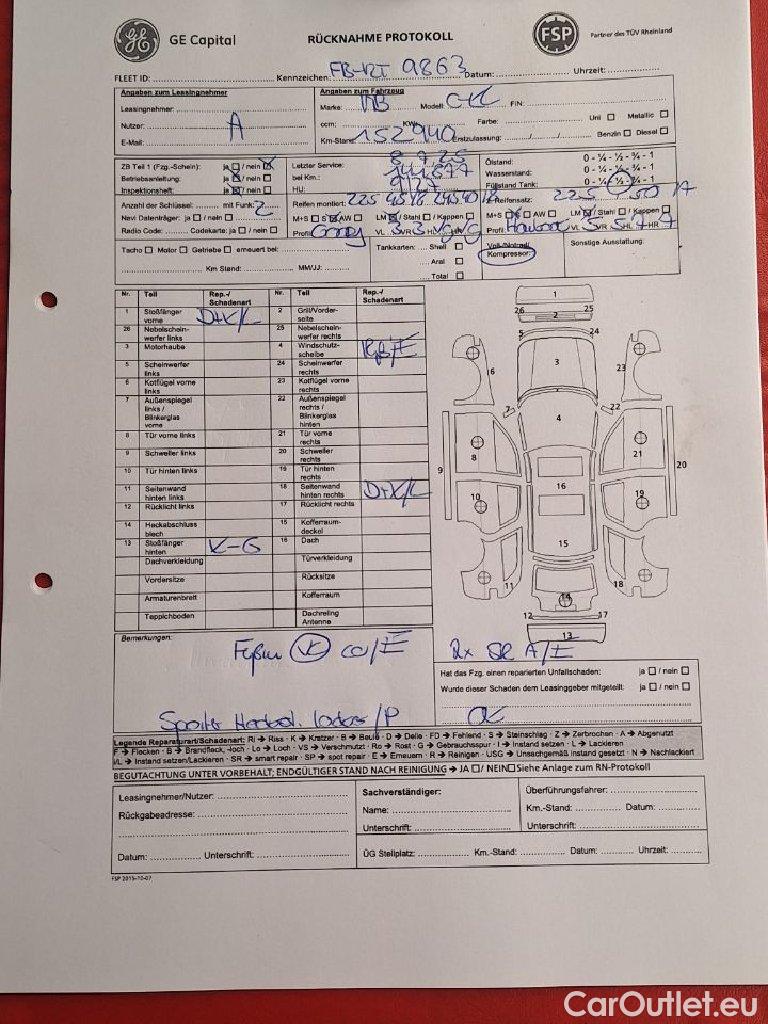 GE Capital RÜCKNAHME PROTOKOLL FSP Partner des TÜV Rheinland
FLEET ID: Kennzeichen: FB-RT 9863 Datum: Uhrzeit:
Angaben zum Leasingnehmer
Leasingnehmer:
Nutzer: A
E-Mail:
Angaben zum Fahrzeug
Marke: Modell: FIN:
ccm: KW: Farbe: Uni Metallic
Km-Stand: 152940 Erstzulassung: / / Benzin Diesel
ZB Teil 1 (Fzg.-Schein): ja / nein
Betriebsanleitung: ja / nein
Inspektionsheft: ja / nein
Letzter Service: 8.7.25
bei Km.:
HU:
Ölstand: 0 - ¼ - ½ - ¾ - 1
Wasserstand: 0 - ¼ - ½ - ¾ - 1
Füllstand Tank: 0 - ¼ - ½ - ¾ - 1
Anzahl der Schlüssel: mit Funk: 2
Navi Datenträger: ja / nein
Radio Code: Codekarte: ja / nein
Reifen montiert: 225 45 18 245 40 18
M+S S AW LM / Stahl / Kappen
Profil VL VR HL HR
Reifensatz: 225 50 17
M+S S AW LM / Stahl / Kappen
Profil VL 5 VR 5 HL 7 HR 7
Tacho Motor Getriebe erneuert bei:
Km Stand: MM/JJ:
Tankkarten: Shell
Aral
Total
Voll-/Notrad/
Kompressor:
Sonstige Ausstattung:
Nr. Teil Rep.-/ Schadenart Nr. Teil Rep.-/ Schadenart
1 Stoßfänger vorne D+K/L 2 Grill/Vorderseite
26 Nebelscheinwerfer links 25 Nebelscheinwerfer rechts
3 Motorhaube 4 Windschutzscheibe
5 Scheinwerfer links 24 Scheinwerfer rechts
6 Kotflügel vorne links 23 Kotflügel vorne rechts
7 Außenspiegel links / Blinkerglas vorne 22 Außenspiegel rechts / Blinkerglas hinten
8 Tür vorne links 21 Tür vorne rechts
9 Schweller links 20 Schweller rechts
10 Tür hinten links 19 Tür hinten rechts
11 Seitenwand hinten links 18 Seitenwand hinten rechts D+K/L
12 Rücklicht links 17 Rücklicht rechts
14 Heckabschlussblech 15 Kofferraumdeckel
13 Stoßfänger hinten K-G 16 Dach
Dachverkleidung Türverkleidung
Vordersitze Rücksitze
Armaturenbrett Kofferraum
Teppichboden Dachreling Antenne
1
26 2 25
5 24
6 3 23
7 22
4
8 21
9 20
16
10 19
15
11 18
14
12 17
13
Bemerkungen:
2x SR A/E
Hat das Fzg. einen reparierten Unfallschaden: ja / nein
Wurde dieser Schaden dem Leasinggeber mitgeteilt: ja / nein
OK
Legende Reparaturart/Schadenart: RI → Riss - K → Kratzer - B → Beule - D → Delle - FD → Fehlend - S → Steinschlag - Z → Zerbrochen - A → Abgenutzt
F → Flecken - B → Brandfleck, -loch - Lo → Loch - VS → Verschmutzt - Ro → Rost - G → Gebrauchsspur - I → Instand setzen - L → Lackieren
I/L → Instand setzen/Lackieren - SR → smart repair - SP → spot repair - E → Erneuern - R → Reinigen - USG → Unsachgemäß instand gesetzt - N → Nachlackiert
BEGUTACHTUNG UNTER VORBEHALT; ENDGÜLTIGER STAND NACH REINIGUNG → JA / NEIN Siehe Anlage zum RN-Protokoll
Leasingnehmer/Nutzer:
Rückgabeadresse:
Datum: Unterschrift:
Sachverständiger:
Name:
Unterschrift:
Überführungsfahrer:
Km.-Stand: Datum:
Unterschrift:
ÜG Stellplatz: Km.-Stand: Datum: Uhrzeit:
FSP 2015-10-07
CarOutlet.eu